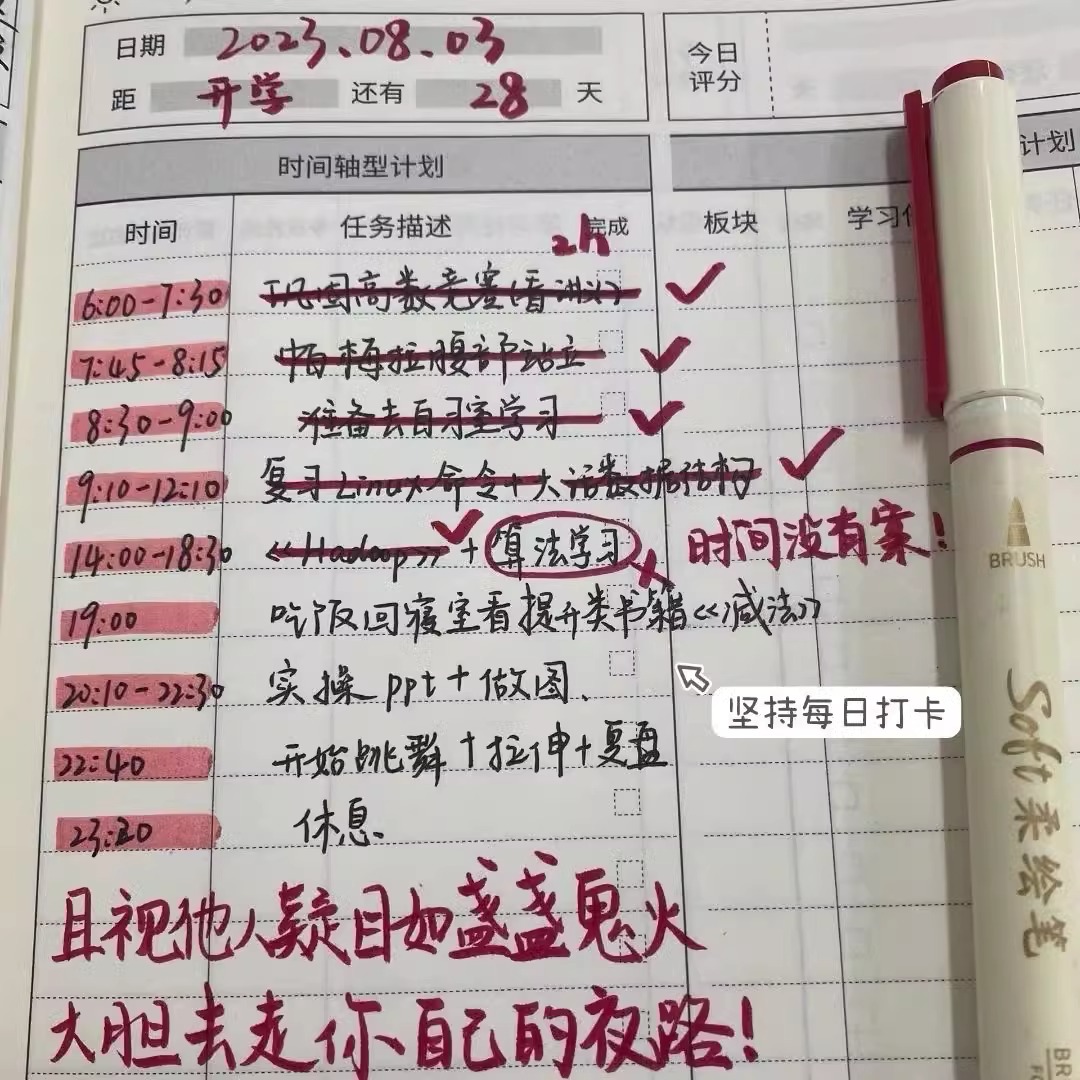 日期 2023.08.03
今日
评分
距 开学 还有 28 天
时间轴型计划
计划
时间 任务描述 完成 板块
2h
6:00-7:30 巩固高数竞赛(看讲义)
7:45-8:15 帕梅拉腹部站立
8:30-9:00 准备去自习室学习
9:10-12:10 复习Linux命令+大话数据结构
14:00-18:30 《Hadoop》+算法学习 时间没有案!
19:00 吃饭回寝室看提升类书籍《减法》
20:10-22:30 实操ppt+做图.
坚持每日打卡
22:40 开始跳舞+拉伸+复盘
23:20 休息.
且视他人疑目如盏盏鬼火
大胆去走你自己的夜路!
BRUSH
Soft 柔绘笔